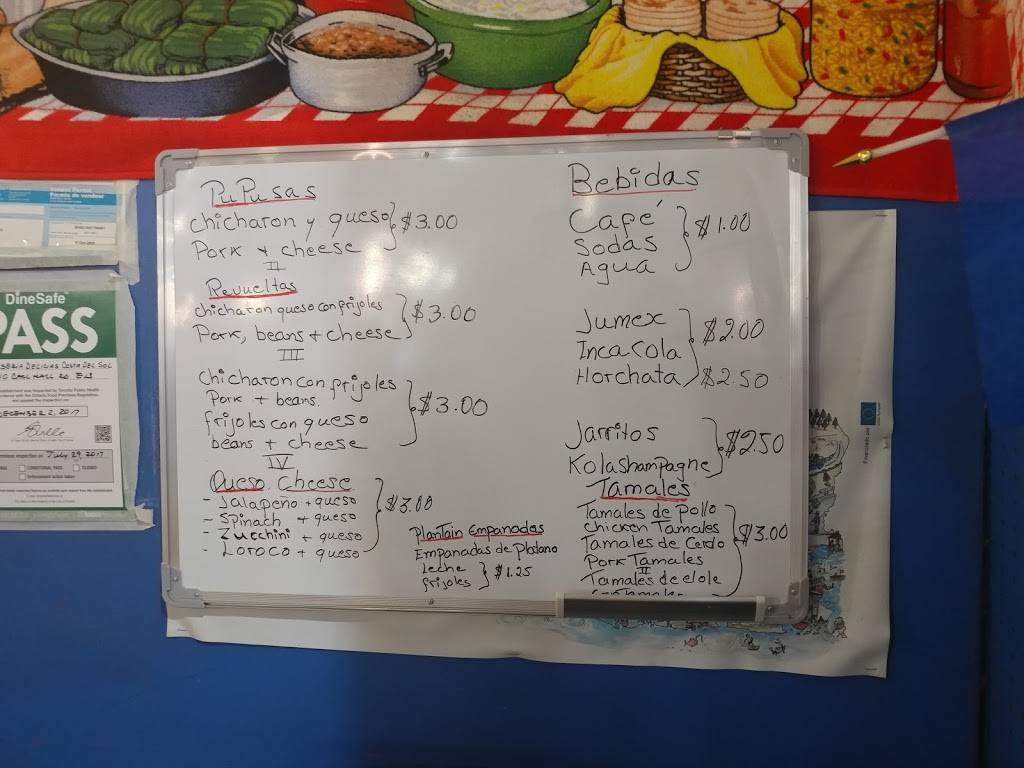 PuPusas
chicharon y queso
Pork + cheese
$3.00
II
Revueltas
chicharon queso con frijoles
Pork, beans + cheese
$3.00
III
chicharon con frijoles
Pork + beans.
frijoles con queso
beans + cheese
$3.00
IV
Queso. Cheese
- Jalapeño + queso
- Spinach + queso
- Zucchini + queso
- Loroco + queso
$3.00
PlanTain Empanadas
Empanadas de Platano
Leche
frijoles
$1.25
Bebidas
Café
Sodas
Agua
$1.00
Jumex
Inca Cola
$2.00
Horchata $2.50
Jarritos
Kolashampagne
$2.50
Tamales
Tamales de Pollo
chicken Tamales
Tamales de Cerdo
Pork Tamales
II
Tamales de elole
$3.00
DineSafe
PASS
DELICIAS COSTA DEL SOL
DECEMBER 2, 2017
July 29, 2017
CONDITIONAL PASS
CLOSED